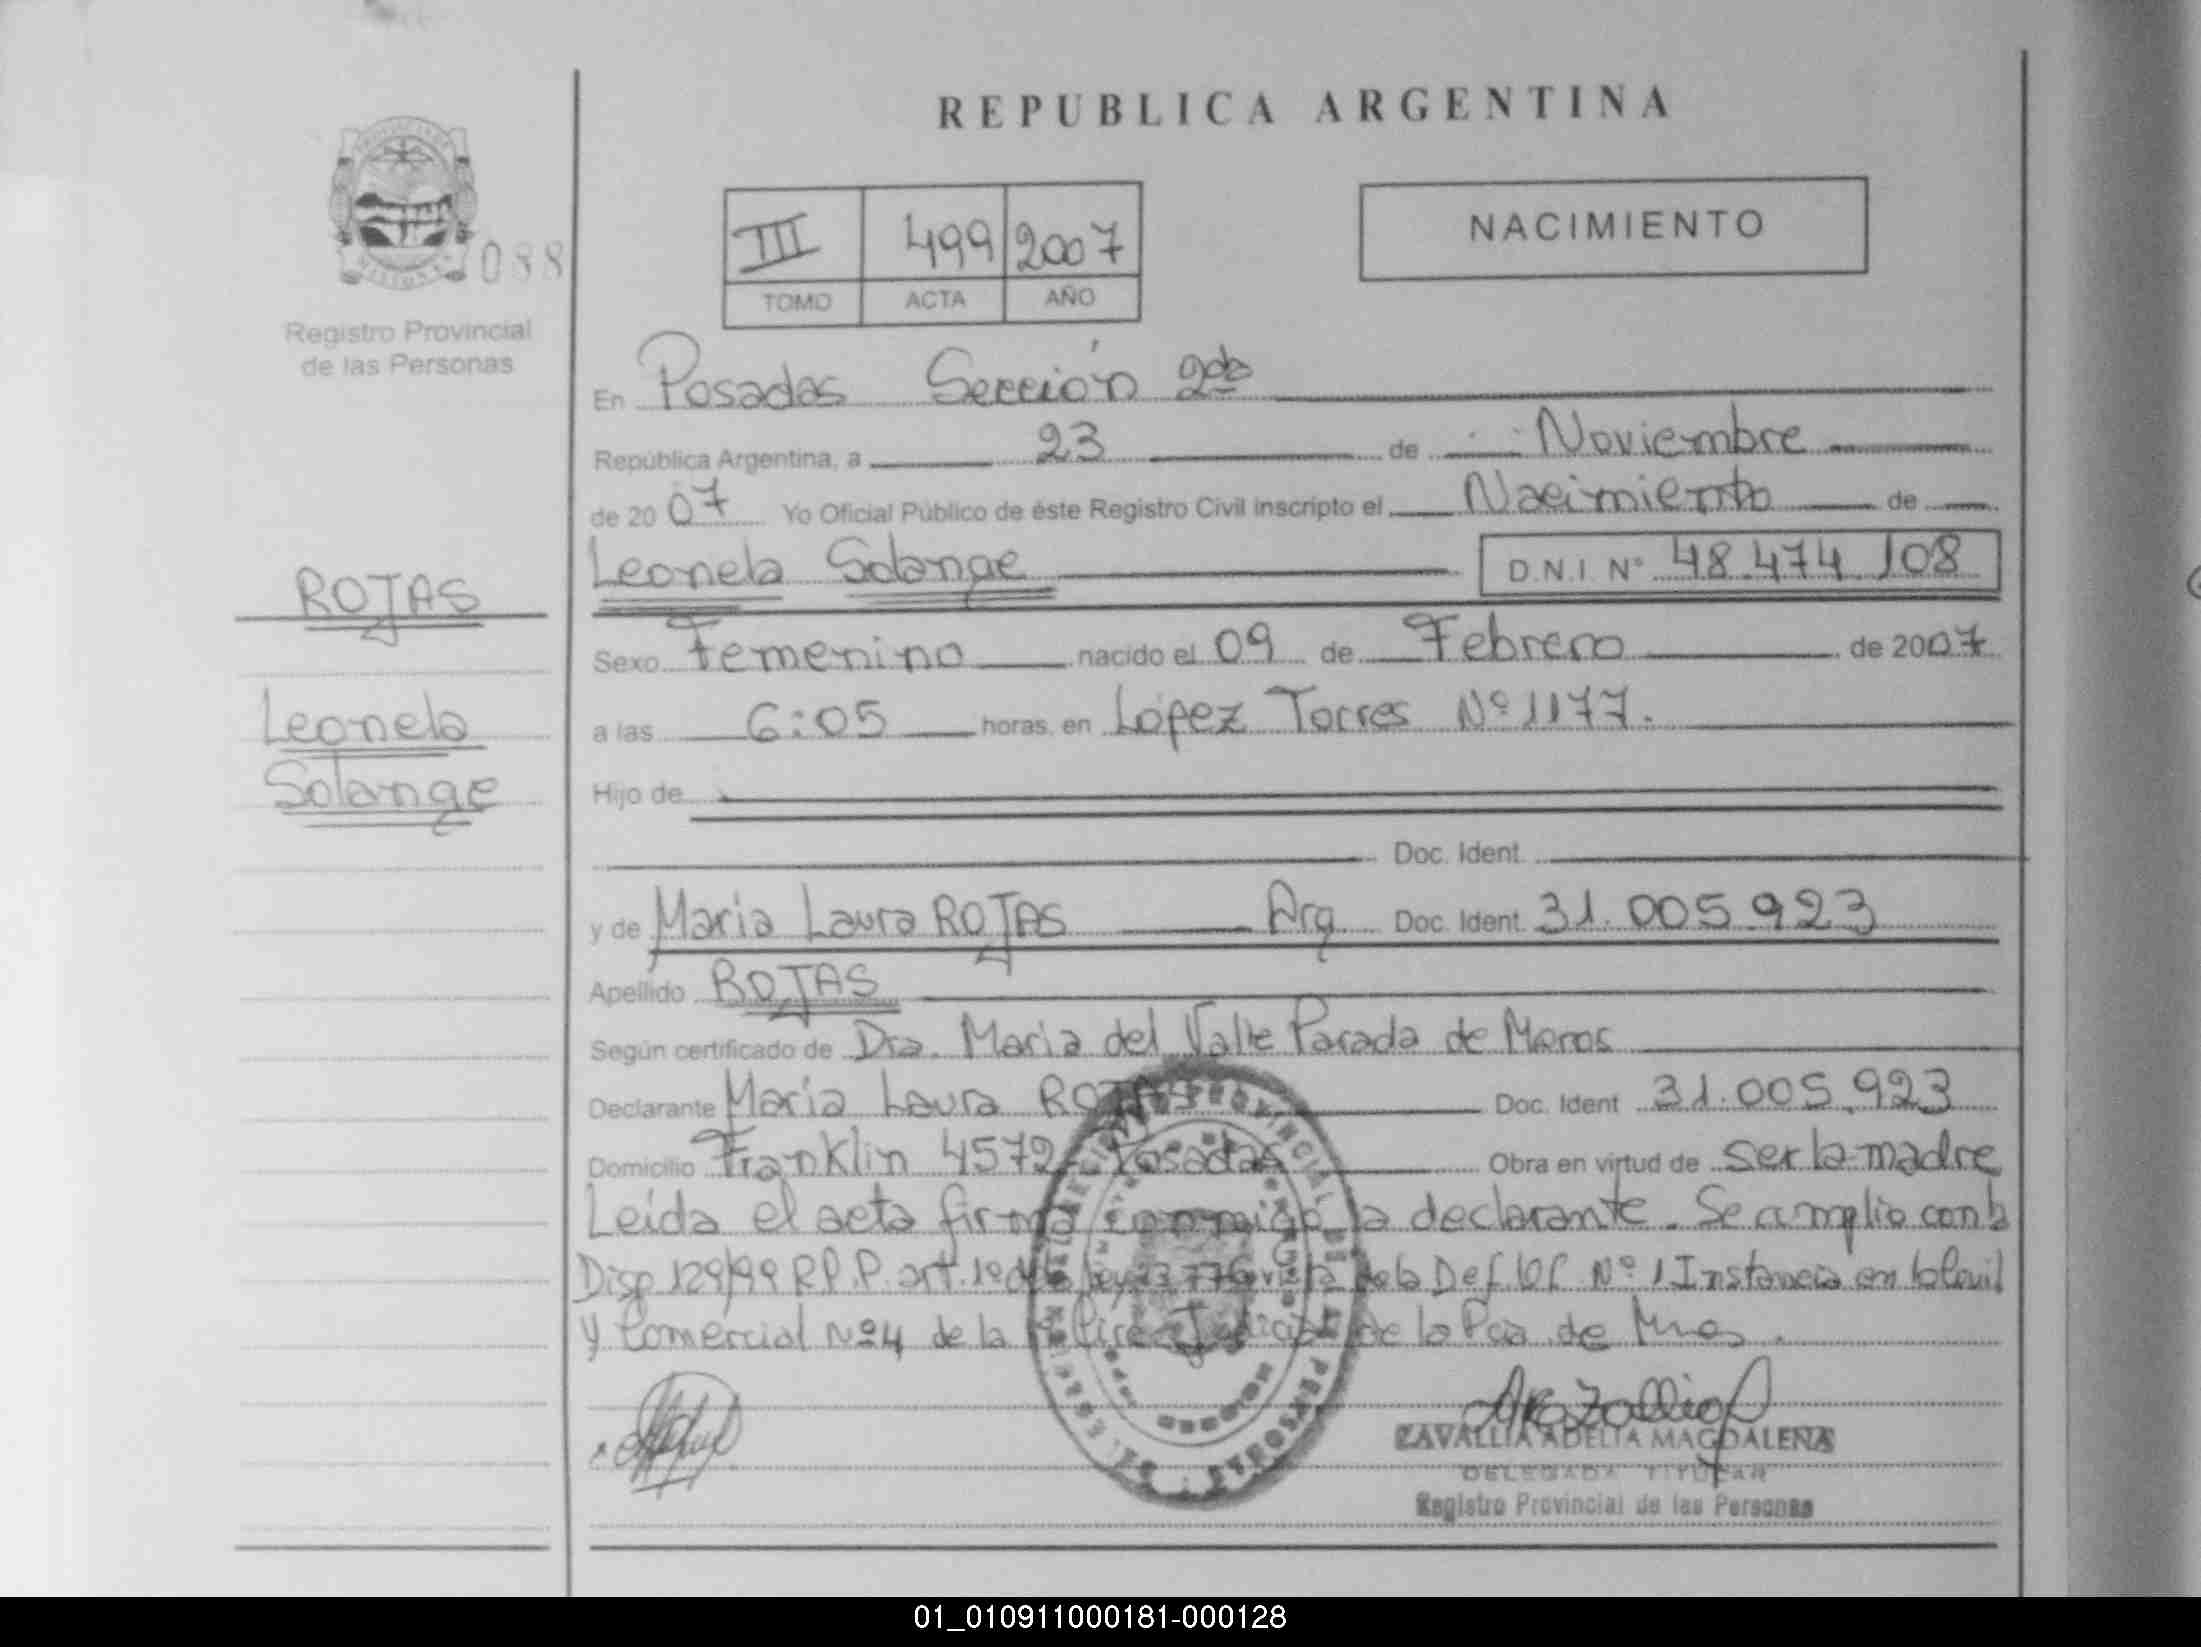 REPUBLICA ARGENTINA
III 499 2007
TOMO ACTA AÑO
NACIMIENTO
088
Registro Provincial
de las Personas
En Posadas Sección 2da
República Argentina, a 23 de Noviembre
de 2007 Yo Oficial Público de éste Registro Civil inscripto el Nacimiento de
Leonela Solange D.N.I. Nº 48.474.108
ROJAS
Leonela
Solange
Sexo Femenino nacido el 09 de Febrero de 2007
a las 6:05 horas, en López Torres Nº 1177.
Hijo de
Doc. Ident.
y de Maria Laura ROJAS Arg. Doc. Ident. 31.005.923
Apellido ROJAS
Según certificado de Dra. Maria del Valle Parada de Meros
Declarante Maria Laura ROJAS Doc. Ident 31.005.923
Domicilio Franklin 4572 Posadas Obra en virtud de ser la madre
Leida el acta firma conmigo la declarante. Se amplio con la
Disp 129/99 R.P.P. art. 1º de la ley 23.776 vista de la Def. Of. Nº 1 Instancia en lo Civil
y Comercial Nº 4 de la de la Pcia de Mnes.
ZAVALLIA ADELIA MAGDALENA
DELEGADA TITULAR
Registro Provincial de las Personas
PROVINCIAL DE LAS PERSONAS
01_010911000181-000128